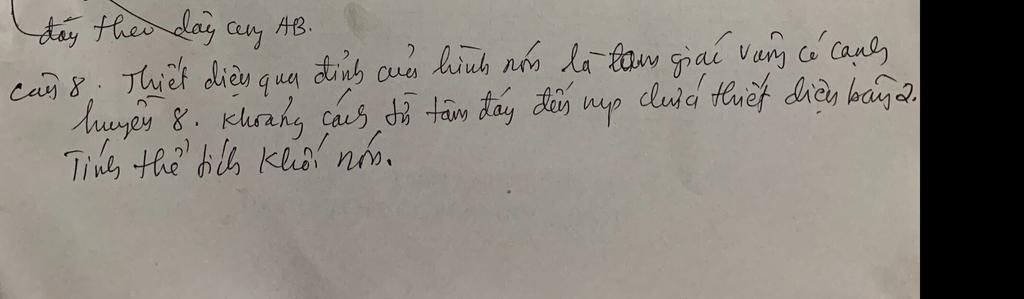 đáy theo dây cung AB.
Câu 8. Thiết diện qua đỉnh của hình nón là tam giác vuông có cạnh
huyền 8. Khoảng cách từ tâm đáy đến mp chứa thiết diện bằng 2.
Tính thể tích khối nón.